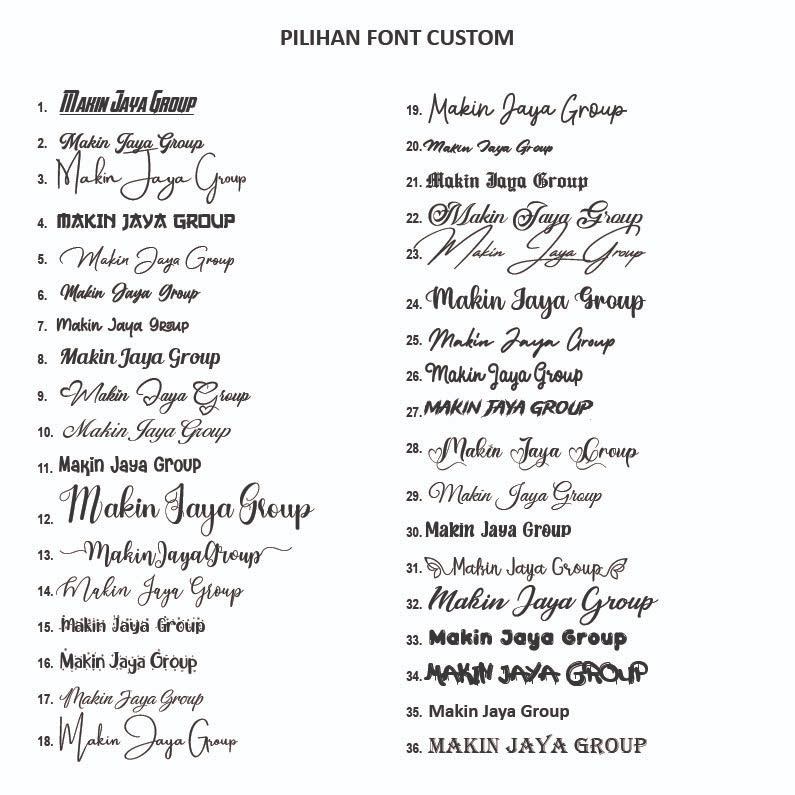 PILIHAN FONT CUSTOM
1. Makin Jaya Group
2. Makin Jaya Group
3. Makin Jaya Group
4. MAKIN JAYA GROUP
5. Makin Jaya Group
6. Makin Jaya Group
7. Makin Jaya Group
8. Makin Jaya Group
9. Makin Jaya Group
10. Makin Jaya Group
11. Makin Jaya Group
12. Makin Jaya Group
13. Makin Jaya Group
14. Makin Jaya Group
15. Makin Jaya Group
16. Makin Jaya Group
17. Makin Jaya Group
18. Makin Jaya Group
19. Makin Jaya Group
20. Makin Jaya Group
21. Makin Jaya Group
22. Makin Jaya Group
23. Makin Jaya Group
24. Makin Jaya Group
25. Makin Jaya Group
26. Makin Jaya Group
27. MAKIN JAYA GROUP
28. Makin Jaya Group
29. Makin Jaya Group
30. Makin Jaya Group
31. Makin Jaya Group
32. Makin Jaya Group
33. Makin Jaya Group
34. MAKIN JAYA GROUP
35. Makin Jaya Group
36. MAKIN JAYA GROUP